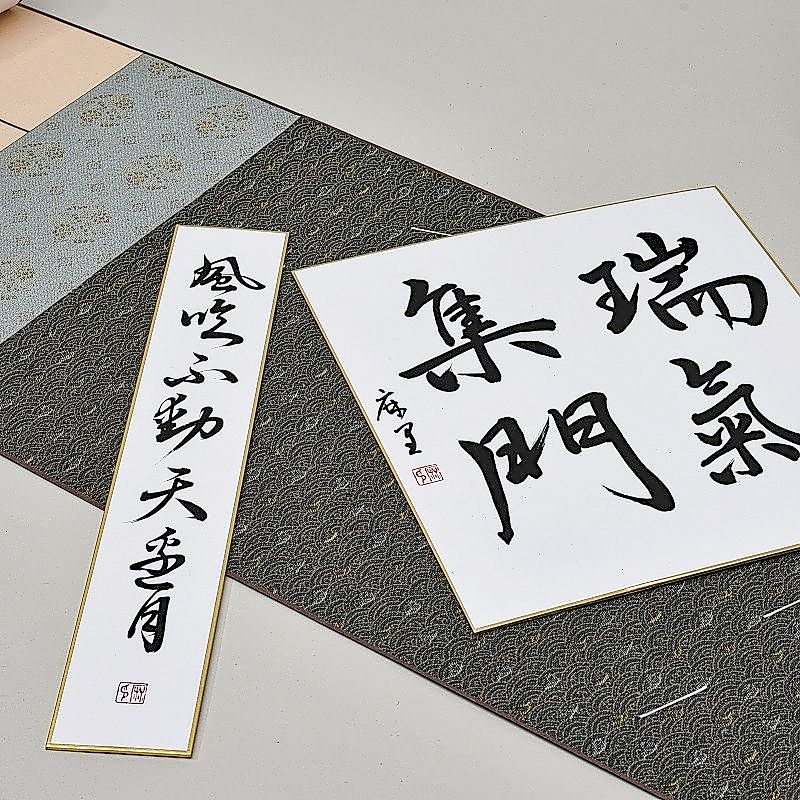 瑞氣
集門
麻里
風吹不動天邊月